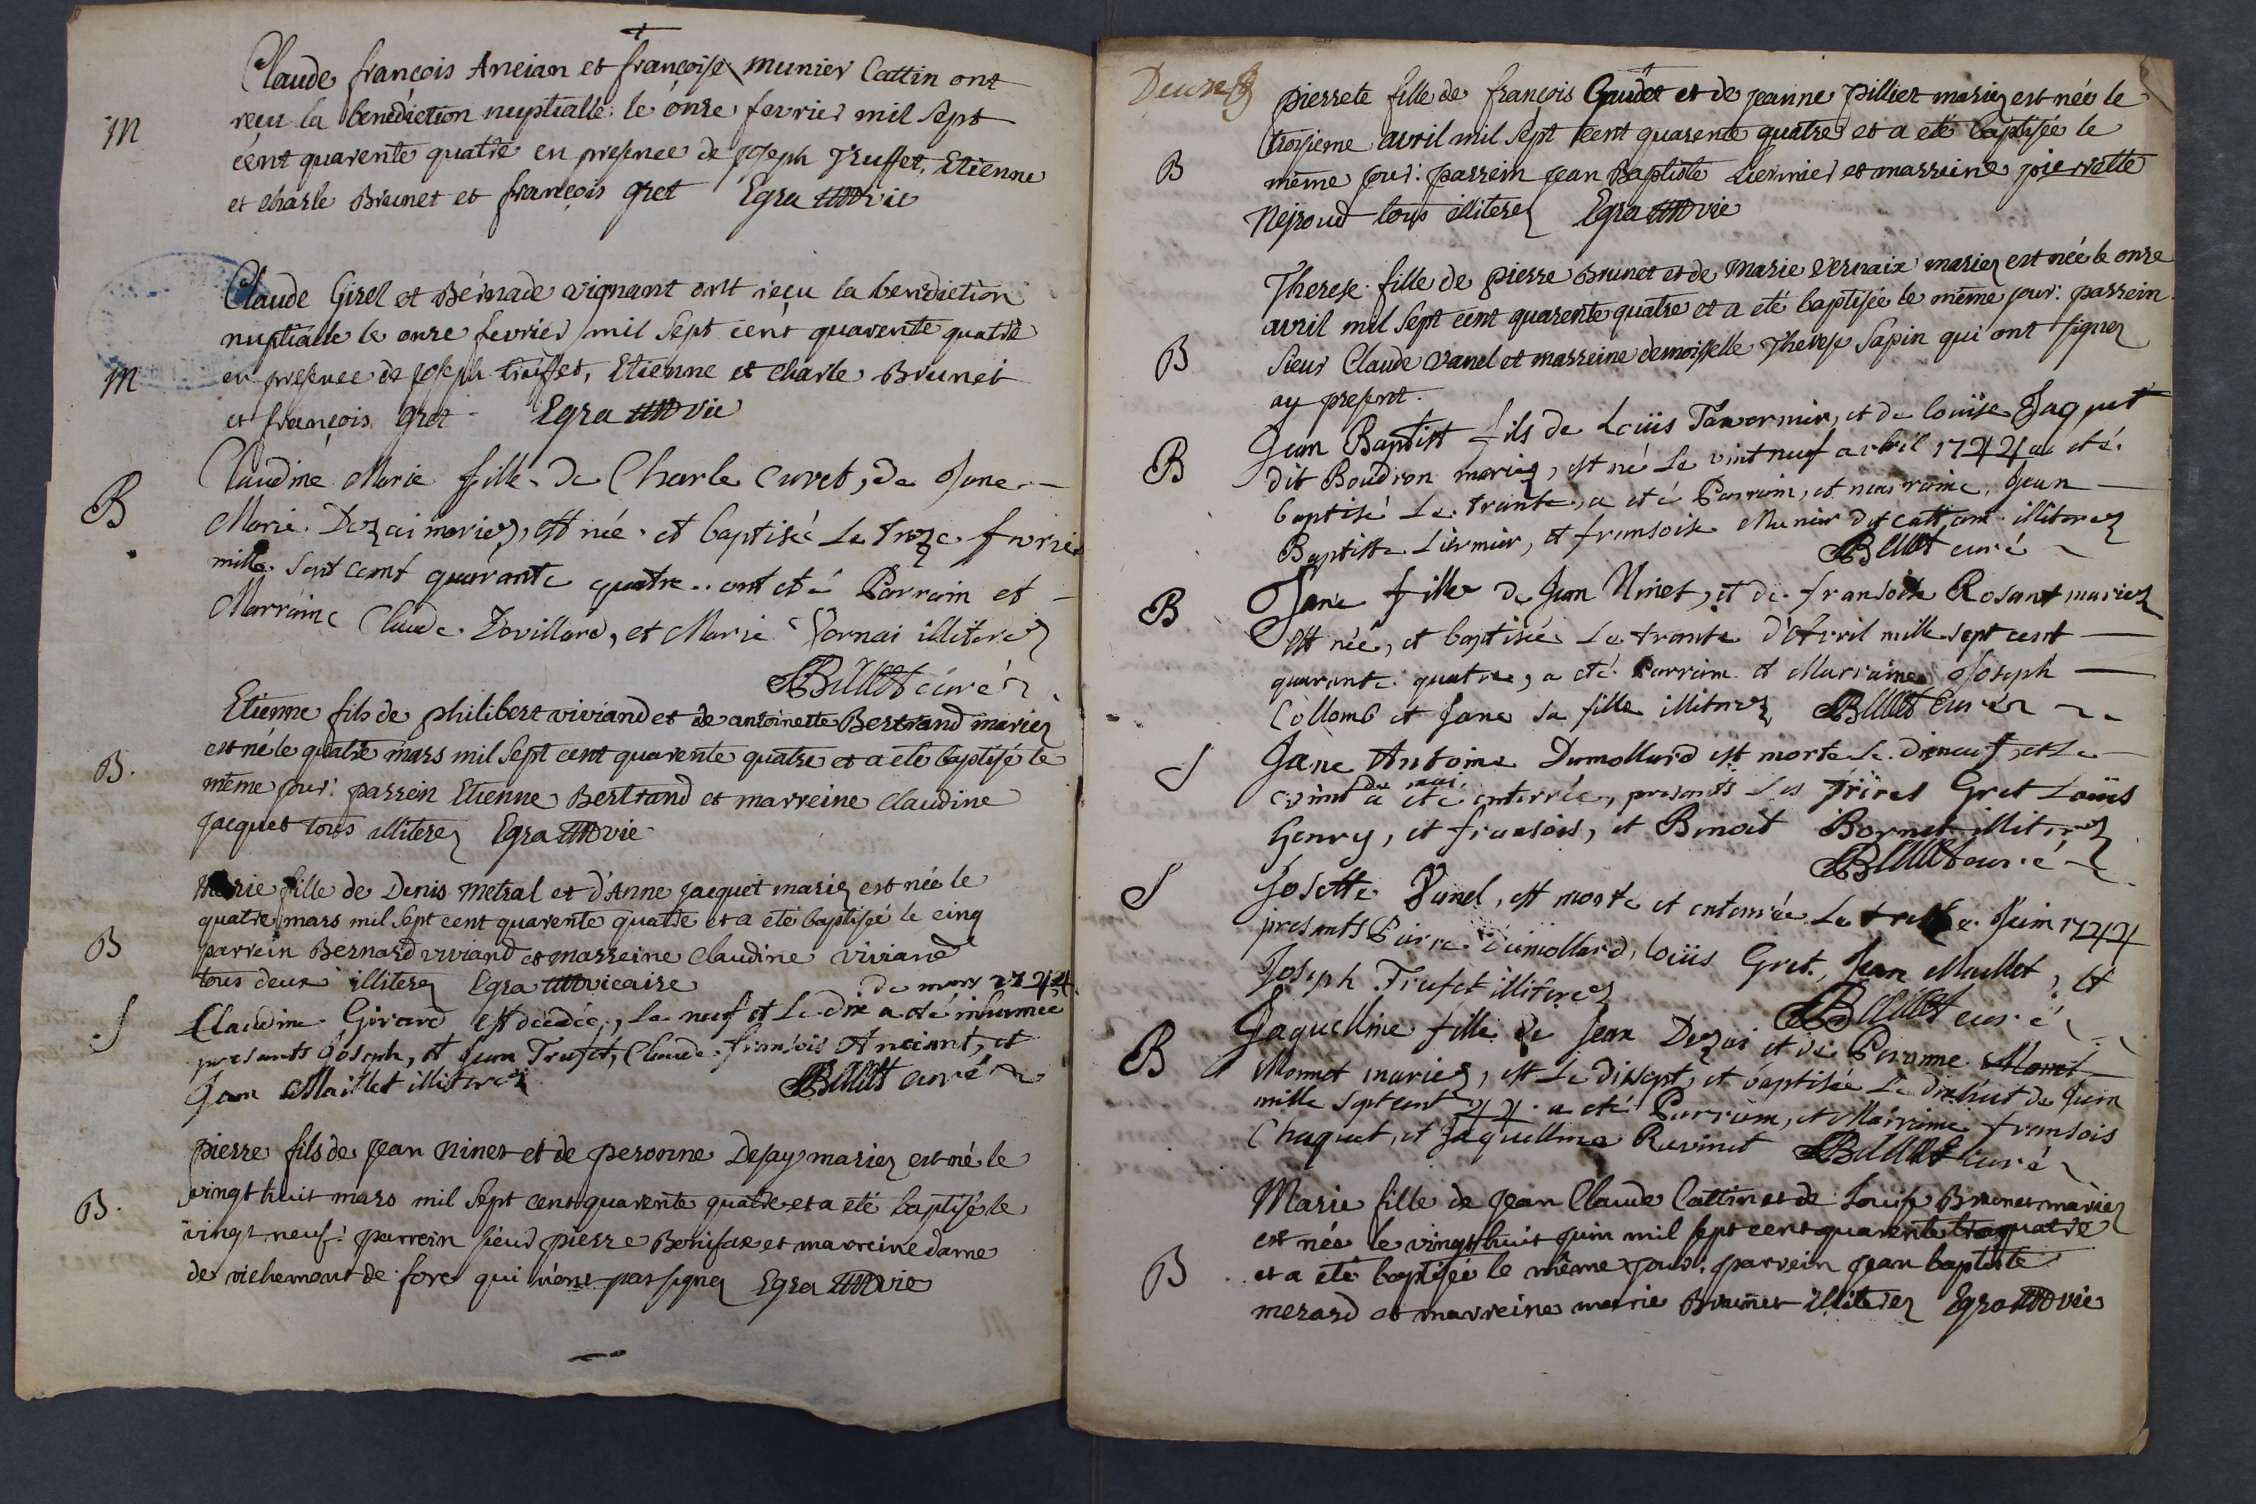 Claude françois Aneian et françoise munier Cattin ont
M
reçu la benediction nuptialle le onze fevrier mil sept
cent quarente quatre en presence de joseph Truffet, Etienne
et charle Brunet et françois gret Egra vic
Claude Girel et Bernade vignant ont reçu la benediction
nuptialle le onze fevrier mil sept cent quarente quatre
M
en presence de joseph truffet, Etienne et charle Brunet
et françois gret Egra vic
Claudine Marie fille de Charle Curet, de Jane
B
Marie Dezai mariez, est née et baptisé le treze fevrier
mille sept cent quarante quatre ont eté Parrain et
Marraine Claude Zovillard, et Marie Vernai illiterez
Billiet curé
Etienne fils de philibert viviand et de antoinette Bertrand mariez
est né le quatre mars mil sept cent quarente quatre et a eté baptisé le
B.
même jour: parrein Etienne Bertrand et marreine Claudine
jacquet tous illiterez Egra vic
Marie fille de Denis metral et d'Anne jacquet mariez est née le
quatre mars mil sept cent quarente quatre et a eté baptisée le cinq
B
parrein Bernard viviand et marreine Claudine viviand
tous deux illiterez Egra vicaire
de mars 1744
Claudine Girard est decedée, le neuf et le dix a eté inhumée
S
presants Joseph, et Jean Trufet, Claude fransois Anciant, et
Jean Maillet illiterez Billiet curé
pierre fils de jean ninet et de peronne Dejay mariez est né le
vingt huit mars mil sept cent quarente quatre et a eté baptisé le
B.
vingt neuf: parrein sieur pierre Bonifax et marreine dame
de richemont de fore qui n'ont pas signez Egra vic
Deux
pierrete fille de françois Gudet et de jeanne pilliet mariez est née le
troisieme avril mil sept cent quarente quatre et a eté baptisée le
B
même jour: parrein jean Baptiste Liermier et marreine pierrette
Nejroud tous illiterez Egra vic
Therese fille de pierre Brunet et de Marie Vernaix mariez est née le onze
avril mil sept cent quarente quatre et a eté baptisée le même jour: parrein
B
sieur Claude vanel et marreine demoiselle Therese Sapin qui ont signez
ay present.
Jean Baptist fils de Loüis Tavormier, et de loüise Jaquet
B
dit Boudron mariez, est né le vint neuf avril 1744 a eté
baptisé le trante, a eté Parrain, et marraine, Jean
Baptiste Liermier, et fransoise Munier dit cattam illiterez
Billiet curé
B
Jane fille de Jean Ninet, et de fransoise Rosant mariez
est née, et baptisée le trante d'Avril mille sept cent
quarante quatre, a eté Parrain et Marraine Joseph
Collomb et Jane sa fille illiterez Billiet Curé
S
Jane Antoine Dumollard est morte le dizneuf, et le
vint de mai a eté enterrée, presants les freres Gret Loüis
Henry, et fransois, et Benoit Bornet illiterez
Billiet curé
S
Josette Vanel, est morte et enterrée le treze Juin 1744
presants Pierre Dumollard, loüis Gret, Jean Maillet, et
Joseph Trufet illiterez
Billiet curé
Jaquelline fille de Jean Dezai et de Peronne Monet
B
Monnet mariez, est le disept, et baptisée le dixhuit de Juin
mille sept cent 44. a eté Parrain, et Marraine fransois
Chaquet, et Jaquelline Ravinet Billiet Curé
Marie fille de jean Claude Cattin et de Louise Brunet mariez
est née le vingt huit juin mil sept cent quarente quatre
B
et a eté baptisée le même jour. parrein jean baptiste
merard et marreine marie Brunet illiterez Egra vic